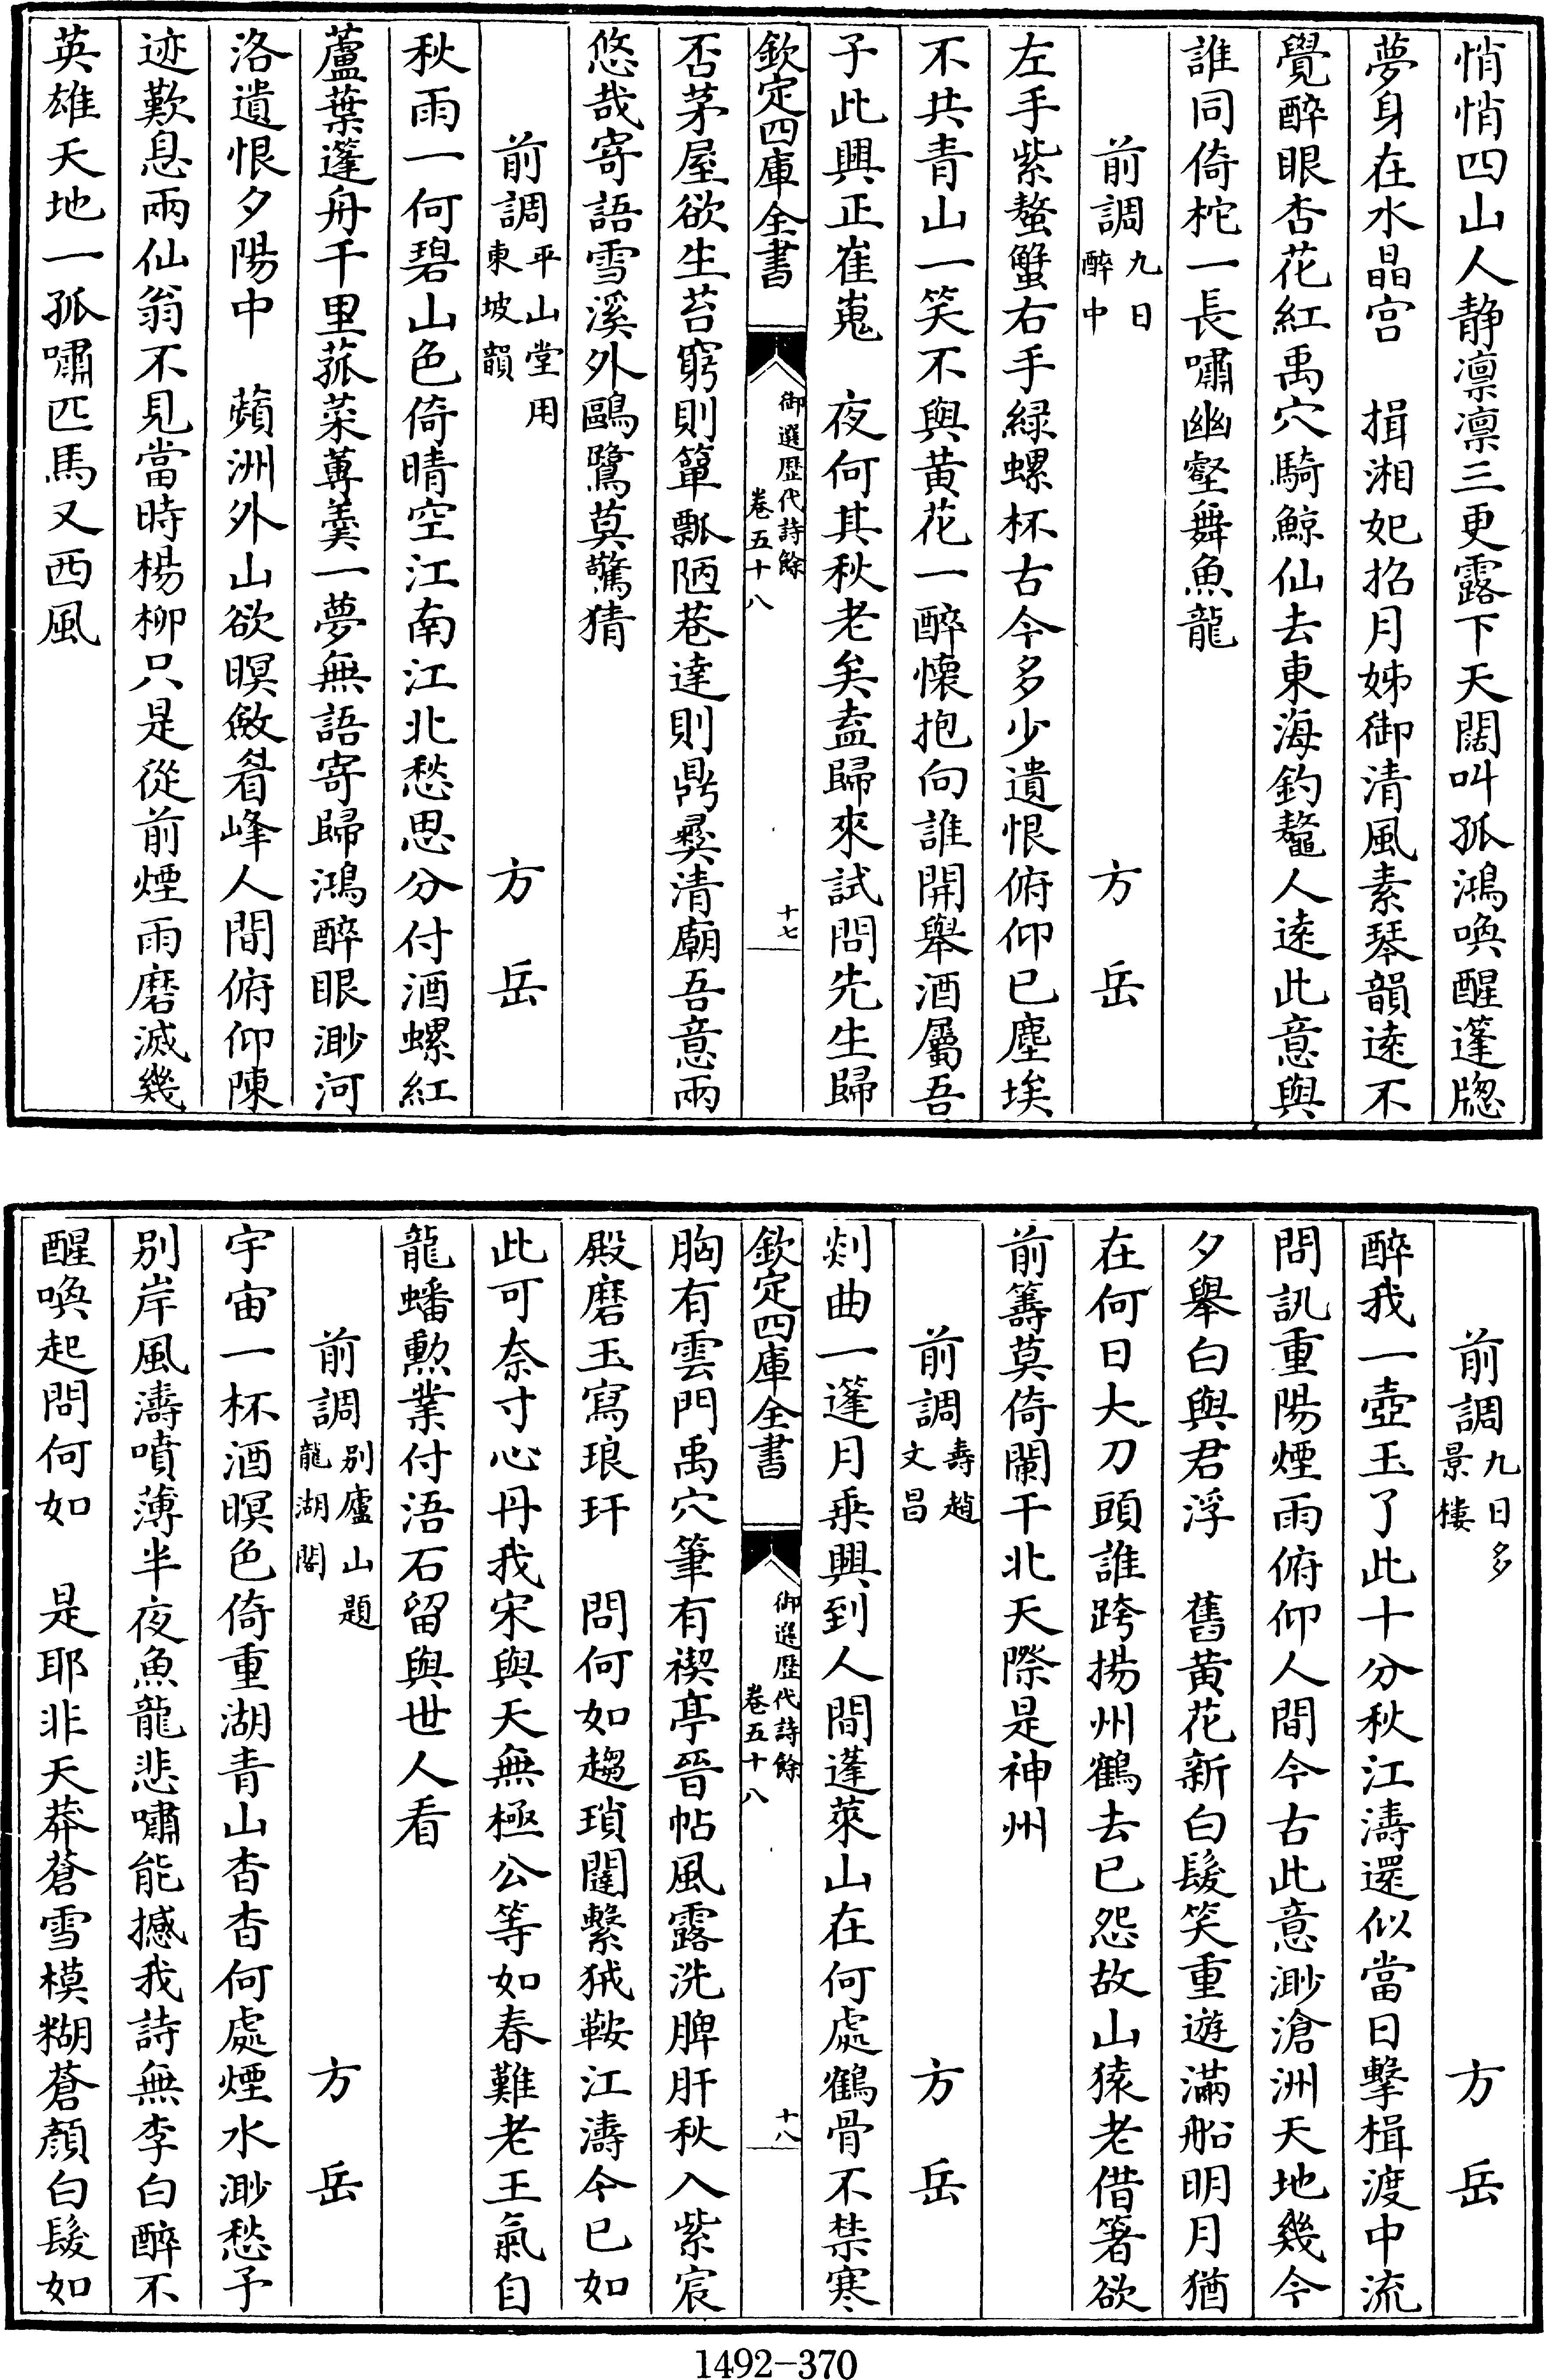 悄悄四山人静凛凛三更露下天闊叫孤鴻喚醒蓬牕
夢身在水晶宫　揖湘妃招月姊御清風素琴韻逺不
覺醉眼杏花紅禹穴騎鯨仙去東海釣鼇人逺此意與
誰同倚柁一長嘯幽壑舞魚龍
前調九日醉中　方岳
左手紫螯蟹右手緑螺杯古今多少遺恨俯仰已塵埃
不共青山一笑不與黄花一醉懐抱向誰開舉酒屬吾
子此興正崔嵬　夜何其秋老矣盍歸來試問先生歸
欽定四庫全書　御選歴代詩餘卷五十八　十七
否茅屋欲生苔窮則簞瓢陋巷達則鼎彛清廟吾意兩
悠哉寄語雪溪外鷗鷺莫驚猜
前調平山堂用東坡韻　方岳
秋雨一何碧山色倚晴空江南江北愁思分付酒螺紅
蘆葉蓬舟千里菰菜蓴羹一夢無語寄歸鴻醉眼渺河
洛遺恨夕陽中　蘋洲外山欲暝斂眉峰人間俯仰陳
迹歎息兩仙翁不見當時楊柳只是從前煙雨磨滅幾
英雄天地一孤嘯匹馬又西風
前調九日多景樓　方岳
醉我一壺玉了此十分秋江濤還似當日擊楫渡中流
問訊重陽煙雨俯仰人間今古此意渺滄洲天地幾今
夕舉白與君浮　舊黄花新白髮笑重遊滿船明月猶
在何日大刀頭誰跨揚州鶴去已怨故山猿老借箸欲
前籌莫倚闌干北天際是神州
前調壽趙文昌　方岳
剡曲一蓬月乗興到人間蓬萊山在何處鶴骨不禁寒
欽定四庫全書　御選歴代詩餘卷五十八　十八
胸有雲門禹穴筆有禊亭晉帖風露洗脾肝秋入紫宸
殿磨玉寫琅玕　問何如趨瑣闥繫狨鞍江濤今已如
此可奈寸心丹我宋與天無極公等如春難老王氣自
龍蟠勲業付浯石留與世人看
前調别廬山題龍湖閣　方岳
宇宙一杯酒暝色倚重湖青山杳杳何處煙水渺愁予
别岸風濤噴薄半夜魚龍悲嘯能撼我詩無李白醉不
醒喚起問何如　是耶非天莽蒼雪模糊蒼顔白髮如
1492-370